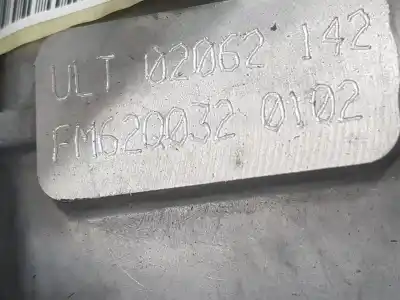 ULT 02062 142
FM620032 0102